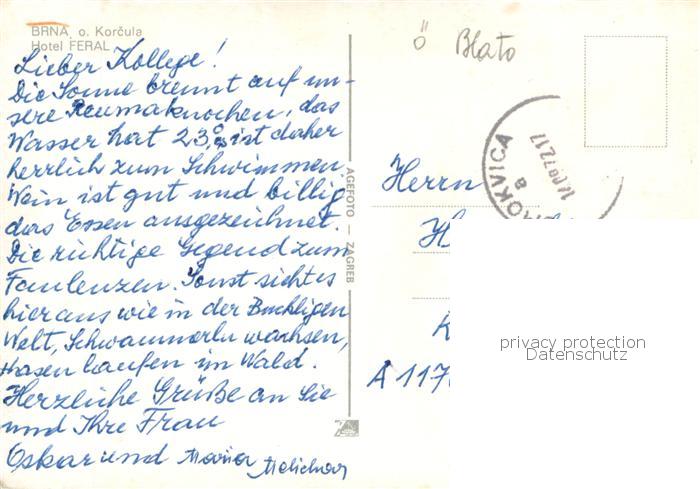 BRNA o. Korčula
Hotel FERAL
Lieber Kollege!
Die Sonne brennt auf un-
sere Reumaknochen, das
Wasser hat 23,° ist daher
herrlich zum Schwimmen.
Wein ist gut und billig
das Essen ausgezeichnet.
Die richtige Gegend zum
Faulenzen. Sonst sieht es
hier aus wie in der Buckligen
Welt, Schwammerln wachsen,
Hasen laufen im Wald.
Herzliche Grüße an Sie
und Ihre Frau
Oskar und Maria Melichar
AGEFOTO — ZAGREB
ö Blato
SMOKVICA
a
Herrn
H
K
A 117
privacy protection
Datenschutz